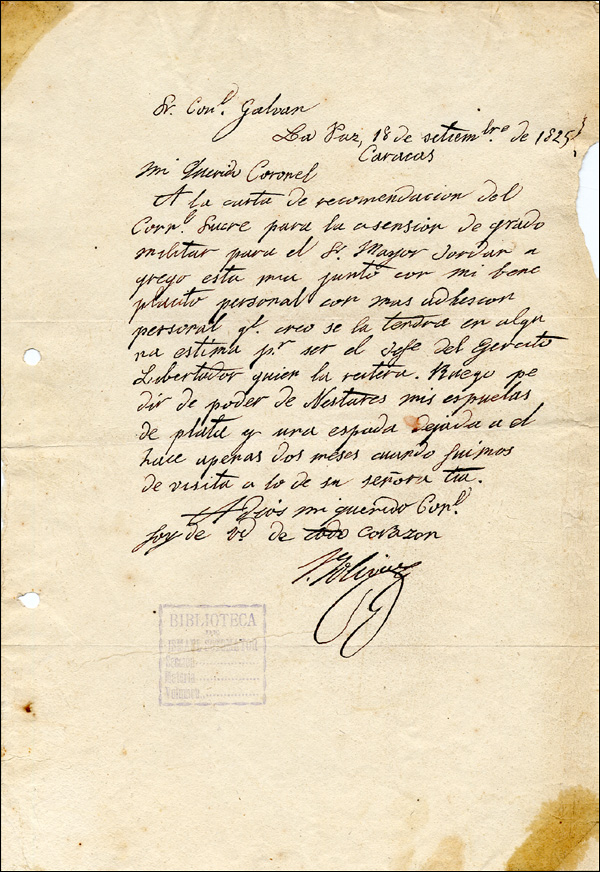 Sr. Conl. Galvan
La Paz, 18 de setiembre de 1825
Caracas
Mi Querido Coronel
A la carta de recomendacion del
Cornl Sucre para la asension de grado
militar para el Sr. Mayor Jordan a
grego esta mia junto con mi bene
placito personal con mas adhescon
personal qe. creo se la tendra en algu
na estima pr ser el Jefe del Ejercito
Libertador quien la reitera. Ruego pe
dir de poder de Nestares mis espuelas
de plata y una espada dejada a el
hace apenas dos meses cuando fuimos
de visita a lo de su señora tia.
A Dios mi querido Conl.
soy de Vd de todo corazon
Bolivar
BIBLIOTECA
Estante
Materia
Volumen